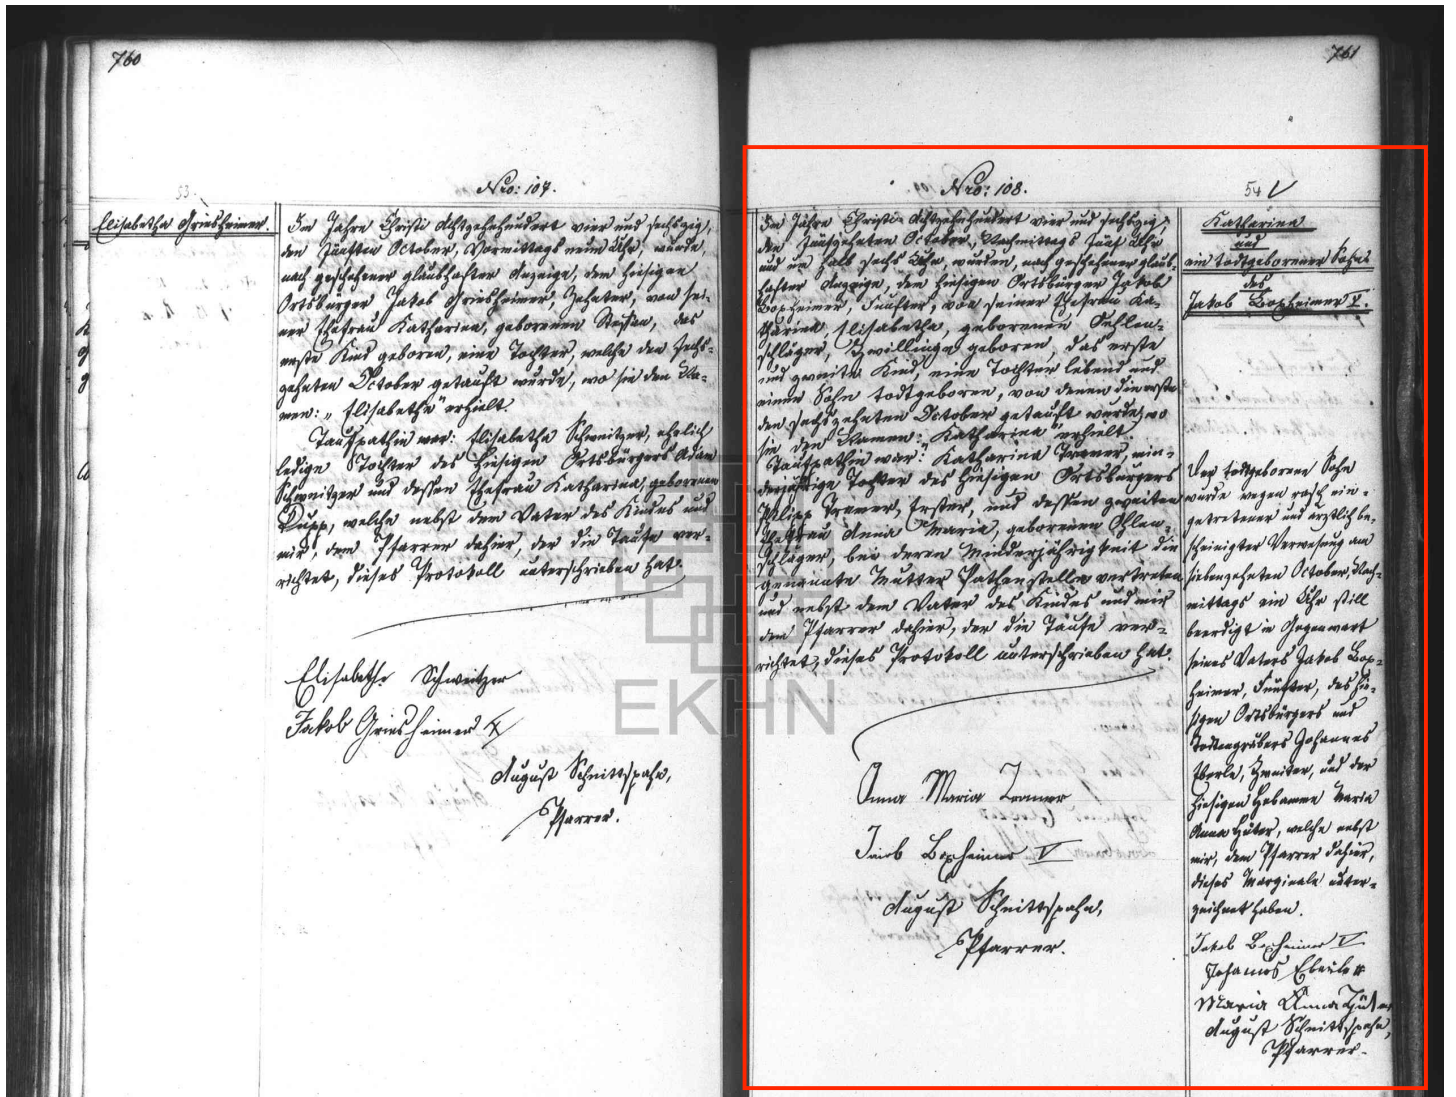 760
53.
Nro: 107.
Elisabetha Griesheimer.
Im Jahre Christi Achtzehnhundert vier und sechszig,
den Fünften October, Vormittags neun Uhr, wurde,
nach geschehener glaubhafter Anzeige, dem hiesigen
Ortsbürger Jakob Griesheimer, Zehnter, von sei-
ner Ehefrau Katharina, geborenen, das
erste Kind geboren, eine Tochter, welche den sechs-
zehnten October getauft wurde, wo sie den Na-
men: „Elisabetha" erhielt.
Taufpathin war: Elisabetha Schweitzer, ehelich
ledige Tochter des hiesigen Ortsbürgers Adam
Schweitzer und dessen Ehefrau Katharina, geborenen
Rupp, welche nebst dem Vater des Kindes und
mir, dem Pfarrer dahier, der die Taufe ver-
richtet, dieses Protokoll unterschrieben hat.
Elisabetha Schweitzer
Jakob Griesheimer X
August Schnittspahn,
Pfarrer.
761
Nro: 108.
54 V
Im Jahre Christi Achtzehnhundert vier und sechszig,
den Fünfzehnten October, Nachmittags fünf Uhr
und um halb sechs Uhr wurden, nach geschehener glaub-
hafter Anzeige, dem hiesigen Ortsbürger Jakob
Boxheimer, Fünfter, von seiner Ehefrau Ka-
tharina, Elisabetha, geborenen Oehlen-
schläger, Zwillinge geboren, das erste
und zweite Kind, eine Tochter lebend und
einen Sohn todtgeboren, von denen die erste
den sechszehnten October getauft wurde, wo
sie den Namen: „Katharina" erhielt.
Taufpathin war: Katharina Tremer, min-
derjährige Tochter des hiesigen Ortsbürgers
Philipp Tremer, Erster, und dessen zweiten
Ehefrau Anna Maria, geborenen Ohlen-
schläger, bei deren Minderjährigkeit die
genannte Mutter Pathenstelle vertreten
und nebst dem Vater des Kindes und mir
dem Pfarrer dahier, der die Taufe ver-
richtet, dieses Protokoll unterschrieben hat.
Anna Maria Tremer
Jacob Boxheimer V
August Schnittspahn,
Pfarrer.
Katharina
und
ein todtgeborener Sohn
des
Jakob Boxheimer V.
Der todtgeborene Sohn
wurde wegen rasch ein-
getretener und ärztlich be-
scheinigter Verwesung am
siebenzehnten October, Nach-
mittags ein Uhr still
beerdigt in Gegenwart
seines Vaters Jakob Box-
heimer, Fünfter, des hie-
sigen Ortsbürgers und
Todtengräbers Johannes
Eberle, Zweiter, und der
hiesigen Hebamme Maria
Anna Hüter, welche nebst
mir, dem Pfarrer dahier,
dieses Marginale unter-
zeichnet haben.
Jakob Boxheimer V
Johannes Eberle II
Maria Anna Hüter
August Schnittspahn,
Pfarrer.
EKHN